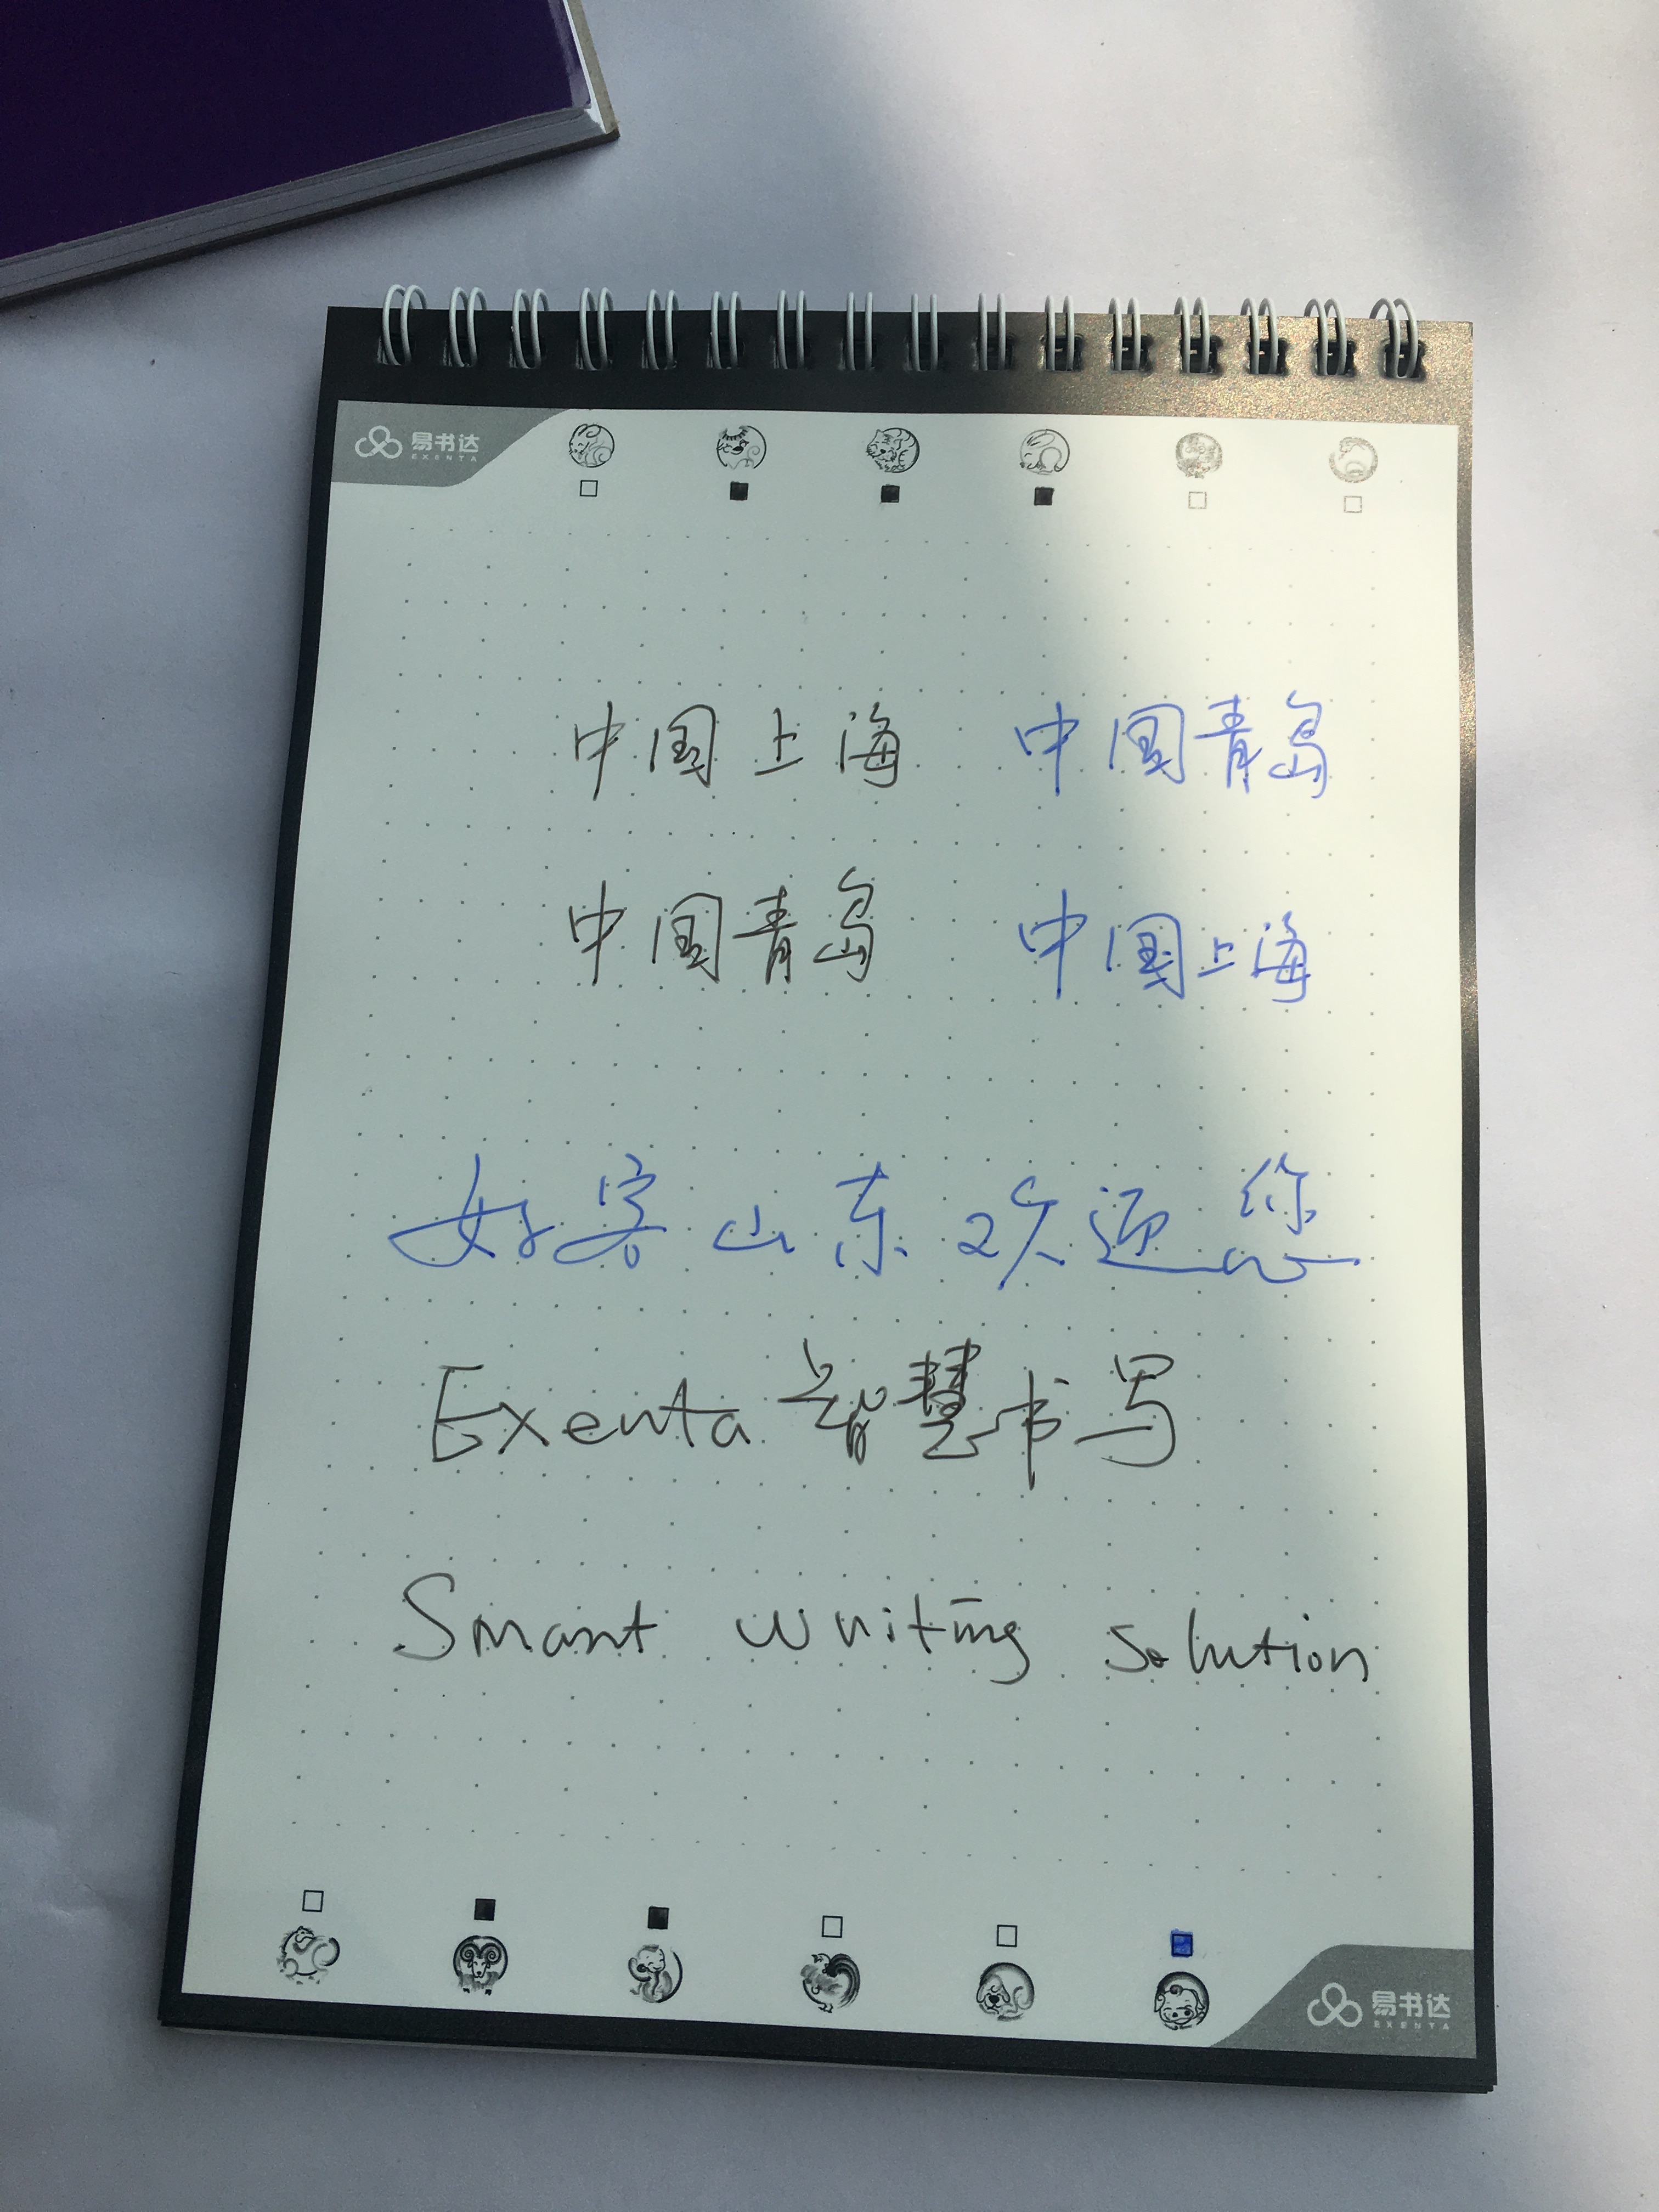 易书达
EXENTA
中国上海 中国青岛
中国青岛 中国上海
好客山东欢迎您
Exenta 智慧书写
Smart writing solution
易书达
EXENTA